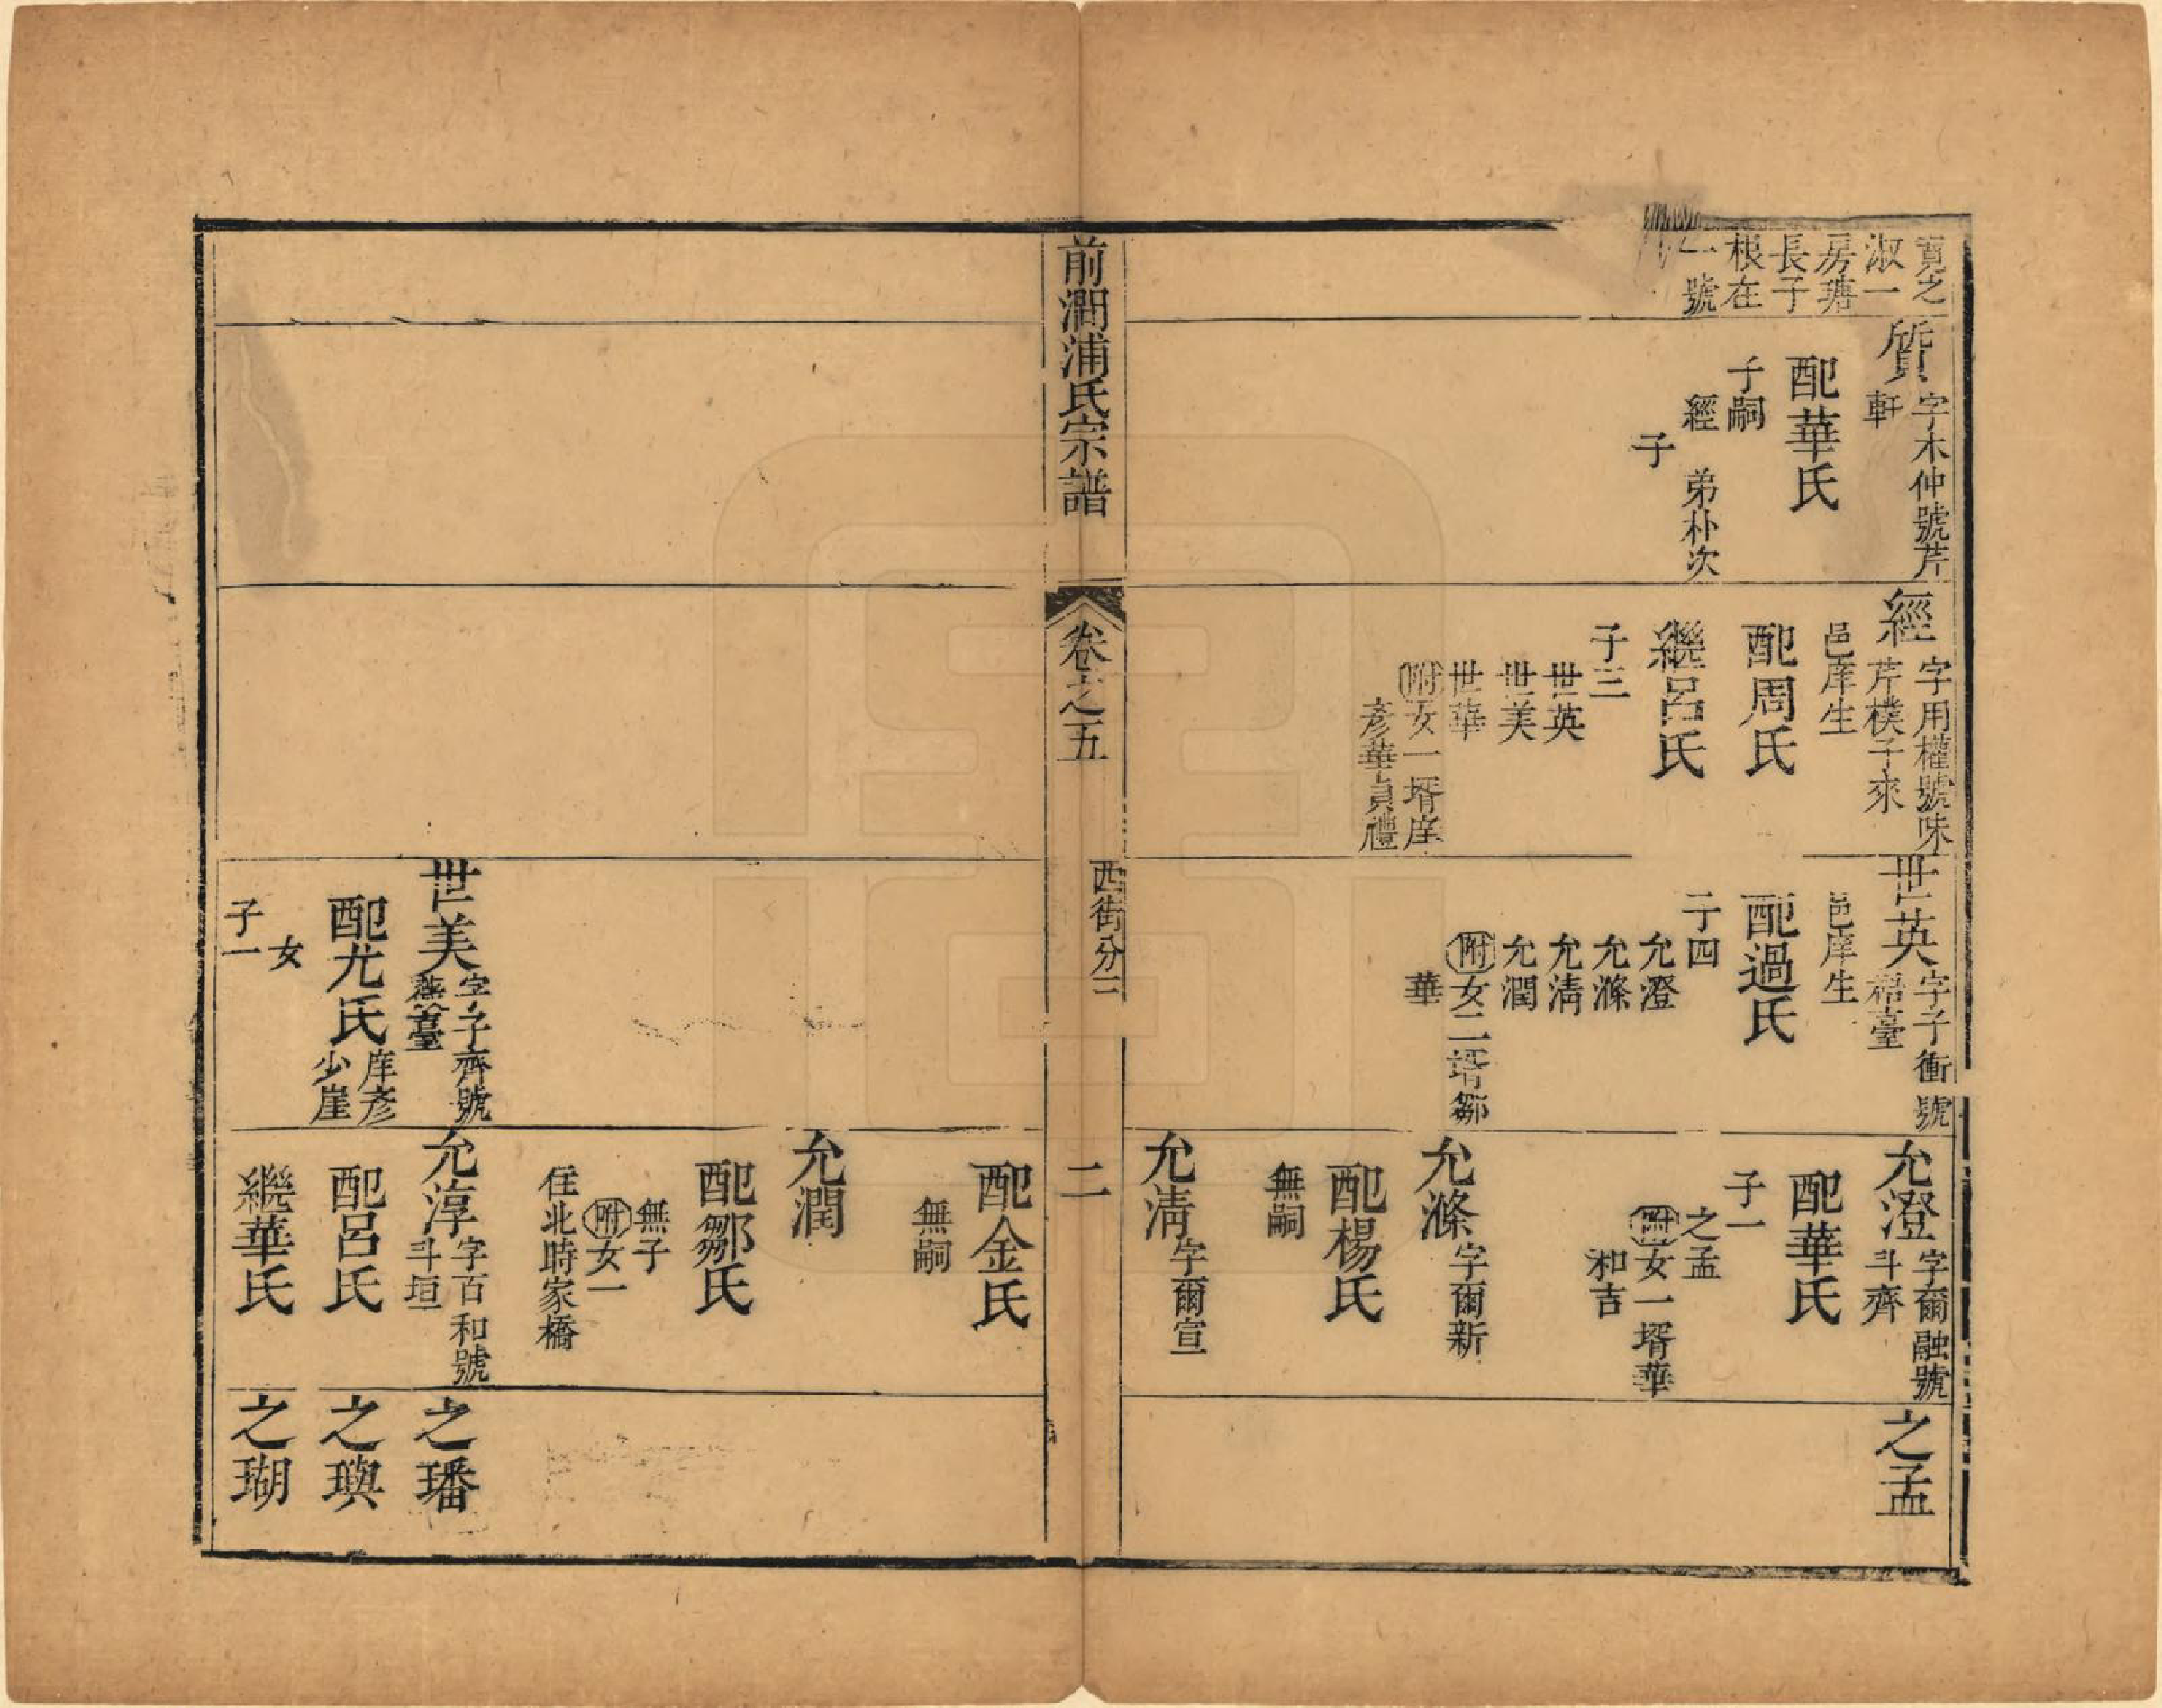 寛之
淑一
房瑭
長子
根在
一號
質
字木仲號芹
軒
配華氏
子嗣
經
弟朴次
子
經
字用權號味
芹樸子來
邑庠生
配周氏
繼呂氏
子三
世英
世美
世華
附女一壻庠
彥華貞禮
世英
字子衝號
梧臺
邑庠生
配過氏
子四
允澄
允滌
允清
允潤
附女二壻鄒
華
允澄
字爾融號
斗齊
配華氏
子一
之孟
附女一壻華
和吉
允滌
字爾新
配楊氏
無嗣
允清
字爾宣
之孟
前澗浦氏宗譜
卷之五
西街分三
二
配金氏
無嗣
允潤
配鄒氏
無子
附女一
住北時家橋
世美
字子齊號
燕臺
配尤氏
庠彥
少崖
女
子一
允淳
字百和號
斗垣
配呂氏
繼華氏
之璠
之璵
之瑚